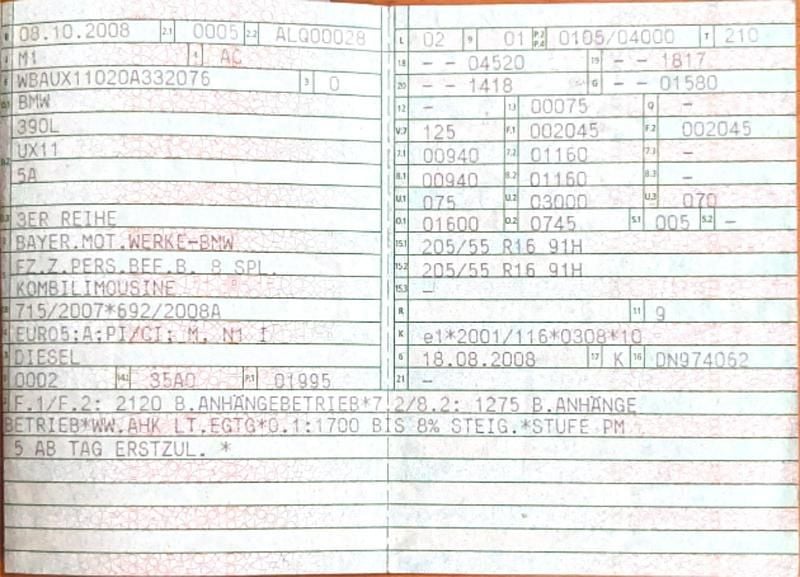 B 08.10.2008 2.1 0005 2.2 ALQ00028
J M1 4 AC
E WBAUX11020A332076 3 0
BMW
390L
UX11
5A
3ER REIHE
BAYER.MOT.WERKE-BMW
FZ.Z.PERS.BEF.B. 8 SPL.
KOMBILIMOUSINE
715/2007*692/2008A
EURO5;A;PI/CI; M, N1 I
DIESEL
0002 14.1 35A0 P.1 01995
L 02 9 01 P.2 P.4 0105/04000 T 210
18 – – 04520 19 – – 1817
20 – – 1418 G – – 01580
12 – 13 00075 Q –
V.7 125 F.1 002045 F.2 002045
7.1 00940 7.2 01160 7.3 –
8.1 00940 8.2 01160 8.3 –
U.1 075 U.2 03000 U.3 070
O.1 01600 O.2 0745 S.1 005 S.2 –
15.1 205/55 R16 91H
15.2 205/55 R16 91H
15.3 –
R 11 9
K e1*2001/116*0308*10
6 18.08.2008 17 K 16 DN974062
21 –
F.1/F.2: 2120 B.ANHÄNGEBETRIEB*7.2/8.2: 1275 B.ANHÄNGE
BETRIEB*WW.AHK LT.EGTG*O.1:1700 BIS 8% STEIG.*STUFE PM
5 AB TAG ERSTZUL. *